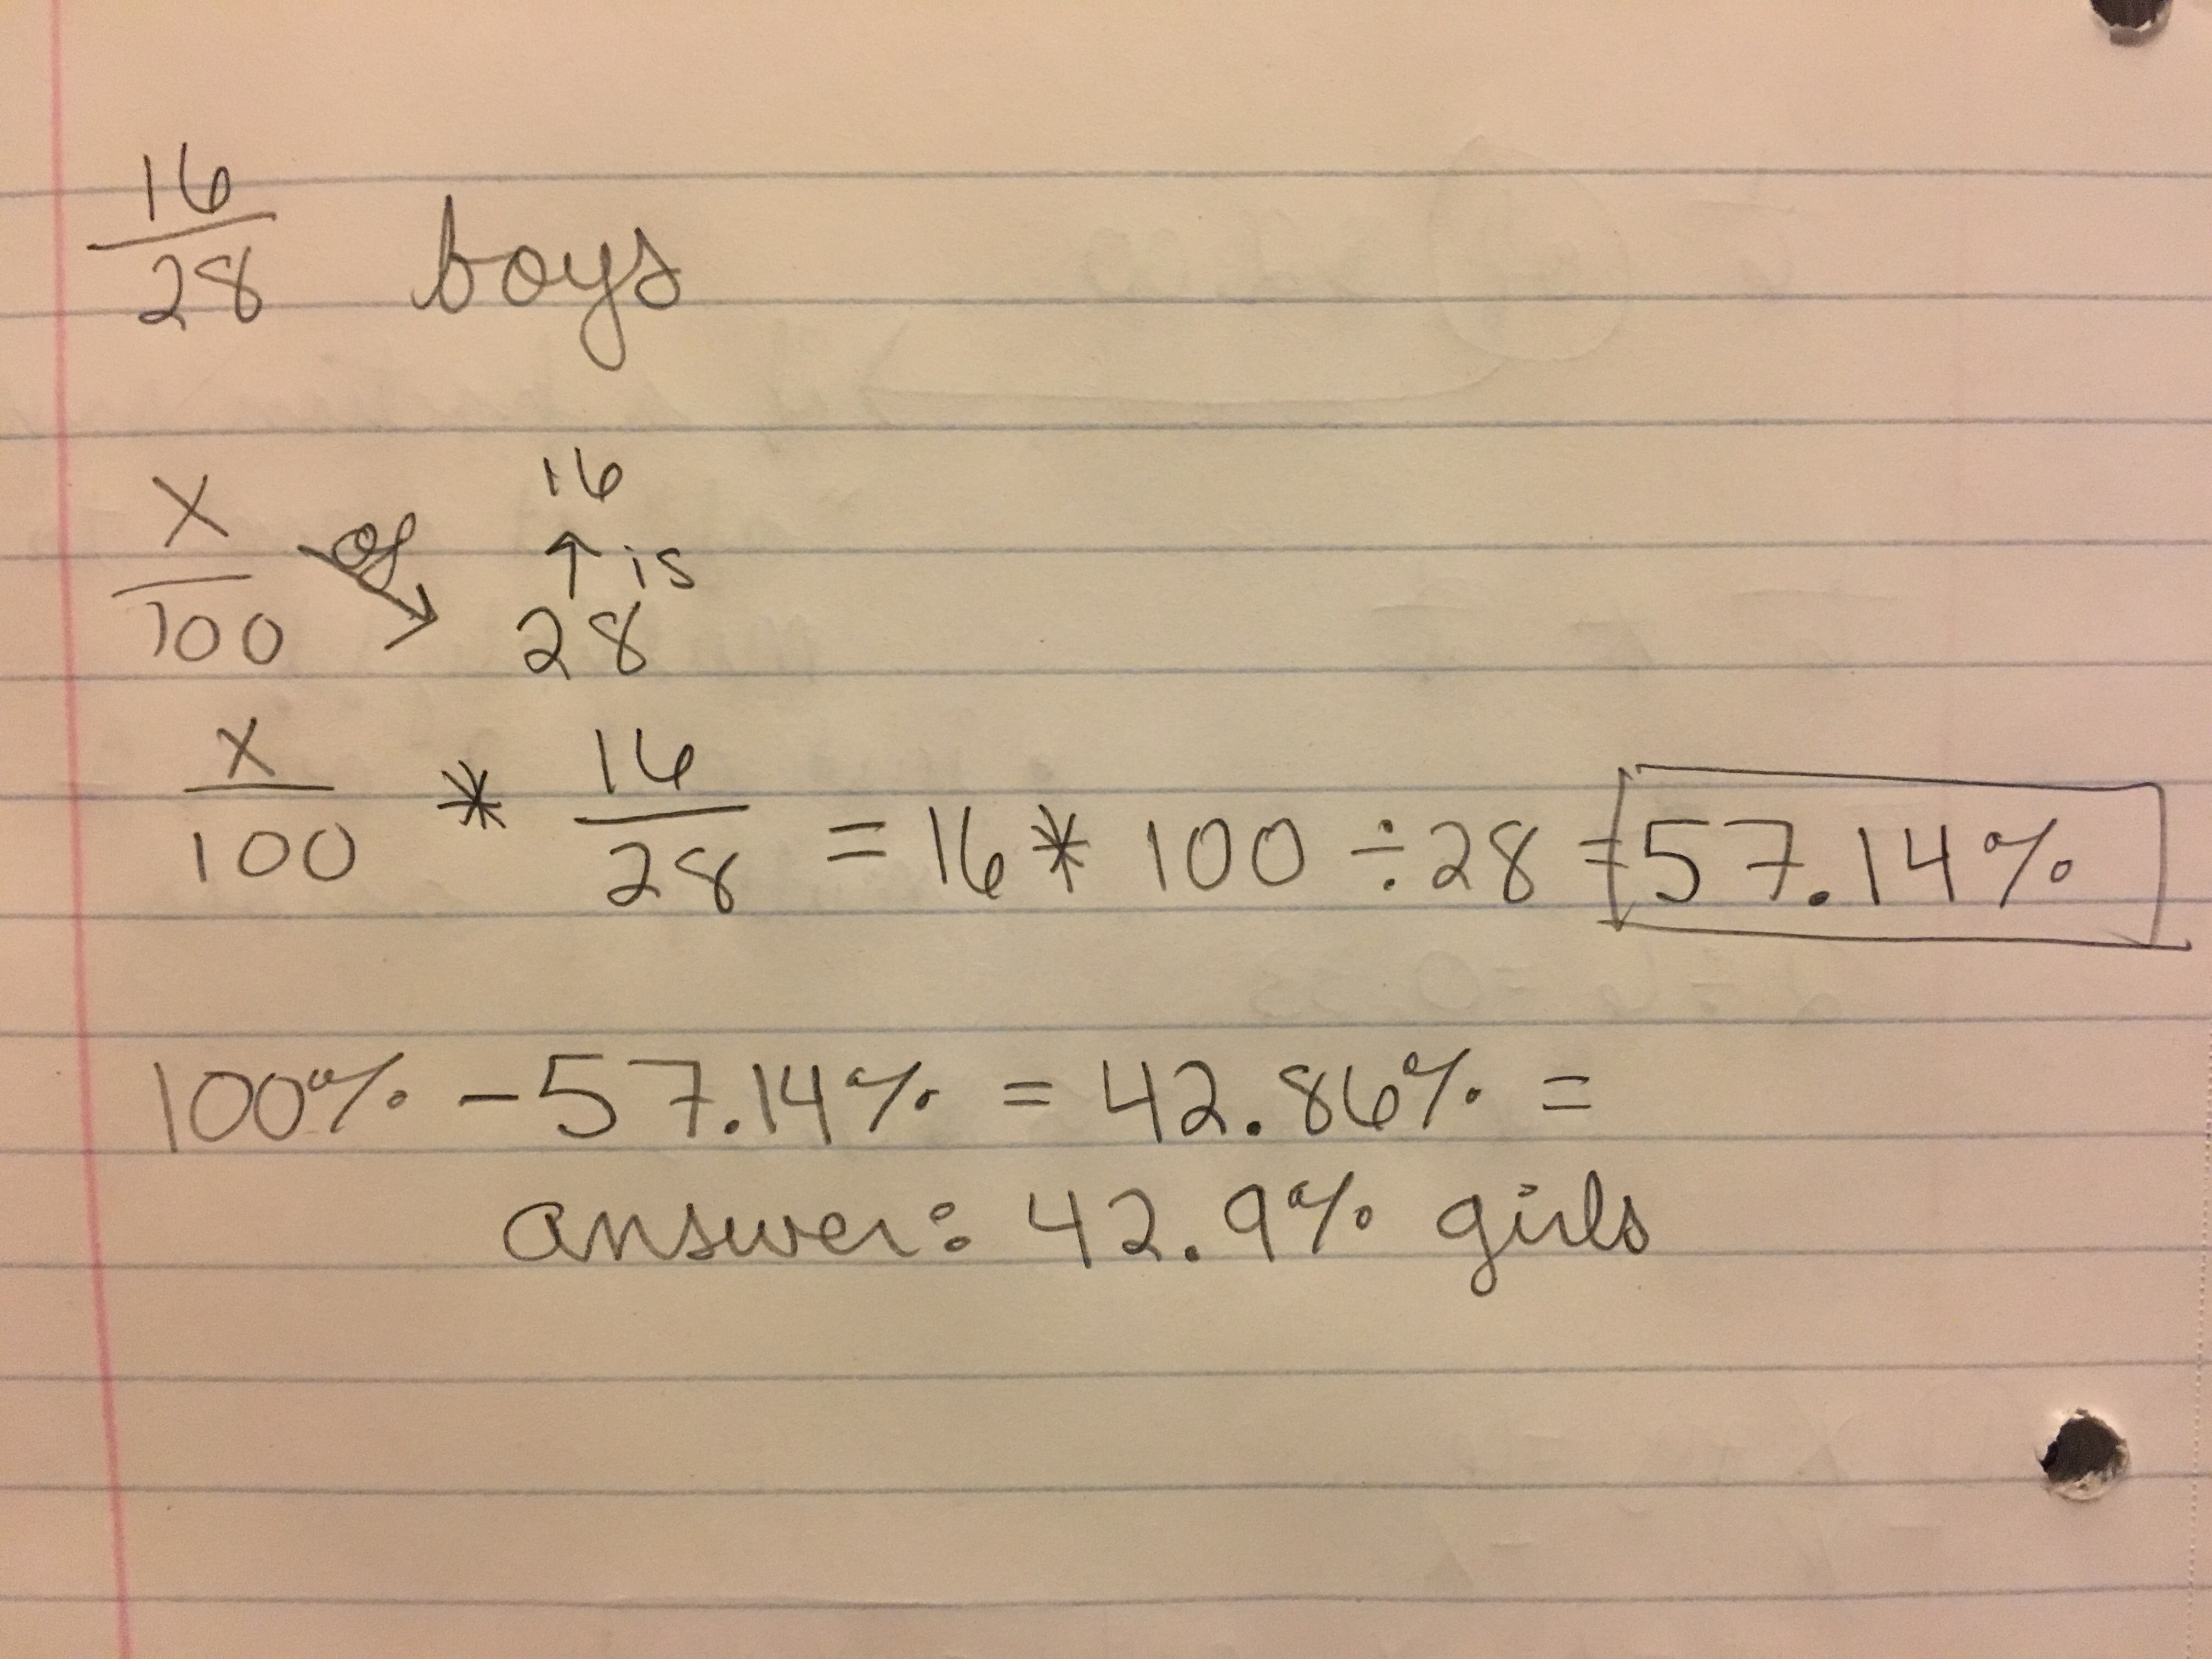 16
28 boys
X of 16
↑ is
100 28
X * 16
100 28 = 16 * 100 ÷ 28 = 57.14%
100% - 57.14% = 42.86% =
answer: 42.9% girls